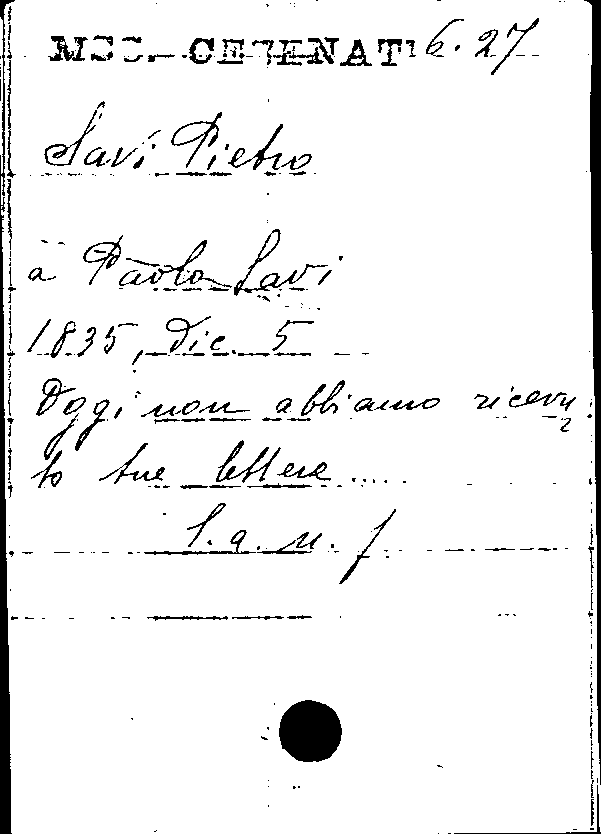 MSS. CESENATI 6.27
Savi Pietro
a Paolo Savi
1835, Dic. 5
Oggi non abbiamo ricevu
to tue lettere....
L.a.n.f